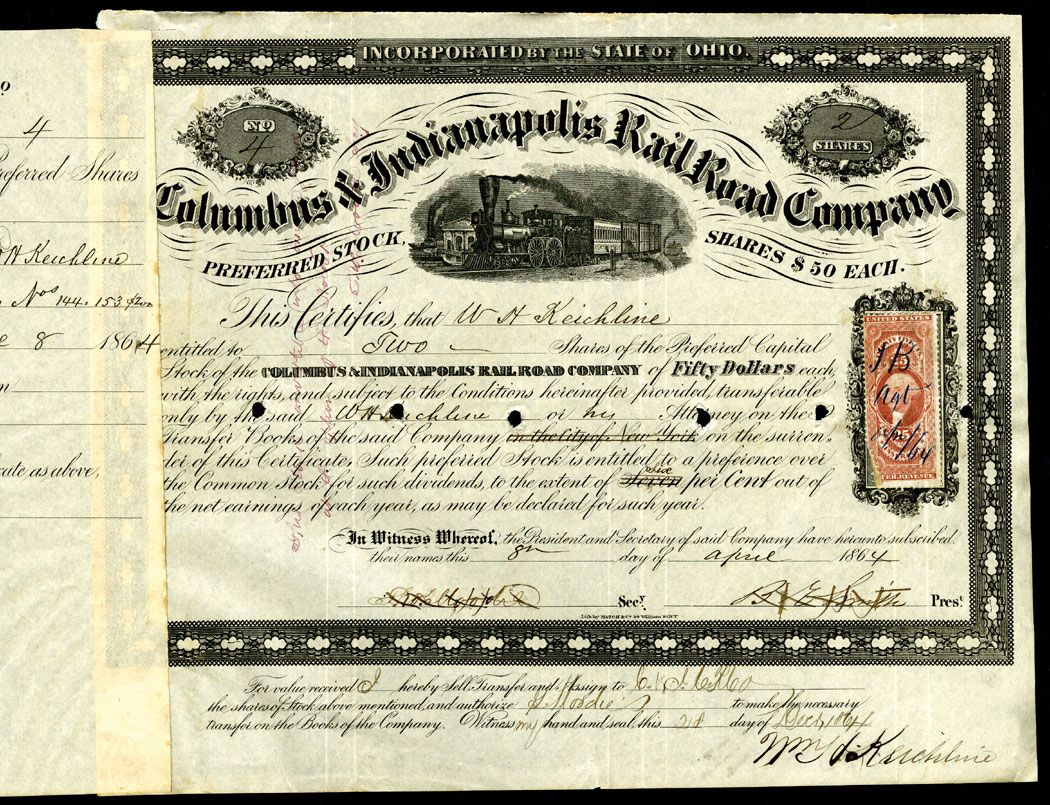 INCORPORATED BY THE STATE OF OHIO.
No
4
2
SHARES
Columbus & Indianapolis Rail Road Company
PREFERRED STOCK,
SHARES $50 EACH.
This Certifies, that W H Keichline
entitled to Two Shares of the Preferred Capital
Stock of the COLUMBUS & INDIANAPOLIS RAIL ROAD COMPANY of Fifty Dollars each
with the rights, and subject to the Conditions hereinafter provided, transferable
only by the said W H Keichline or his Attorney on the
Transfer Books of the said Company in the City of New York on the surren-
der of this Certificate, Such preferred Stock is entitled to a preference over
the Common Stock for such dividends, to the extent of Seven Six per Cent out of
the net earnings of each year, as may be declared for such year.
In Witness Whereof, the President and Secretary of said Company have hereunto subscribed
their names this 8th day of April 1864
Secy
B E Smith Prest
Lith by HATCH & Co
For value received I hereby Sell, Transfer and Assign to C. & I. C. R Co
the shares of Stock above mentioned, and authorize to make the necessary
transfer on the Books of the Company. Witness my hand and seal, this 28 day of Dec 1864
Wm H. Keichline
UNITED STATES
25
INTER. REVENUE
4
Preferred Shares
H Keichline
Nos 144. 153
8 1864
cate as above,